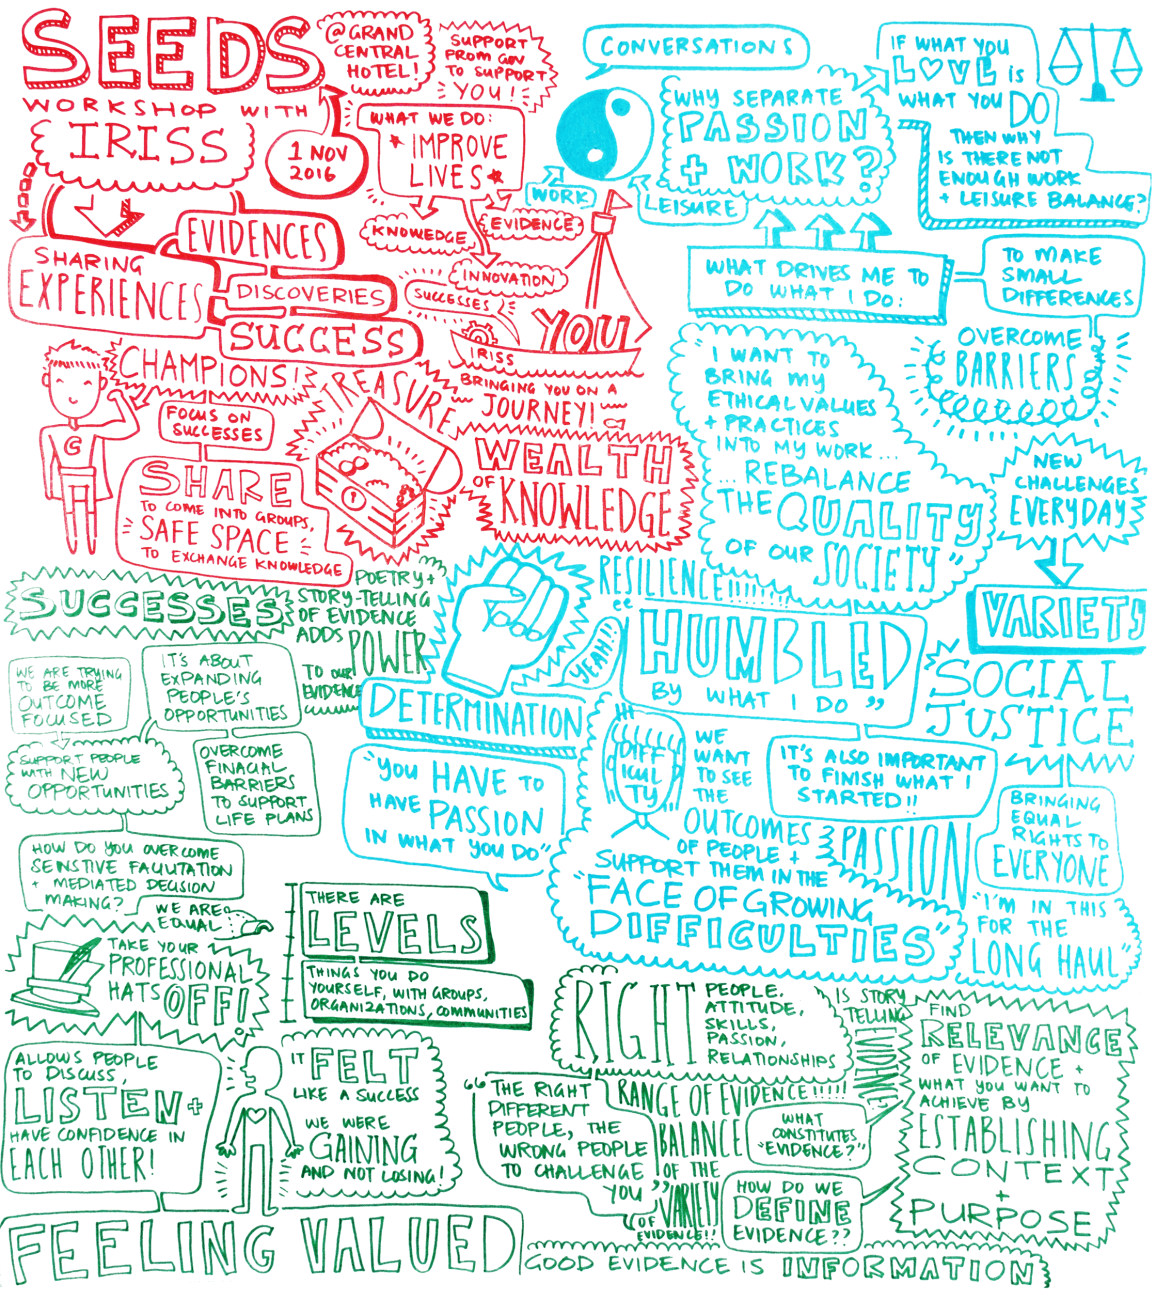 SEEDS
WORKSHOP WITH
IRISS
@ GRAND
CENTRAL
HOTEL!
1 NOV
2016
SUPPORT
FROM GOV
TO SUPPORT
YOU!
WHAT WE DO:
IMPROVE
LIVES
KNOWEDGE
EVIDENCE
INNOVATION
SUCCESSES
IRISS
YOU
BRINGING YOU ON A
JOURNEY!
EVIDENCES
SHARING
EXPERIENCES
DISCOVERIES
SUCCESS
CHAMPIONS!
FOCUS ON
SUCCESSES
G
TREASURE
SHARE
TO COME INTO GROUPS,
SAFE SPACE
TO EXCHANGE KNOWLEDGE
WEALTH
OF KNOWLEDGE
CONVERSATIONS
WORK
LEISURE
WHY SEPARATE
PASSION
+ WORK?
IF WHAT YOU
LOVE IS
WHAT YOU DO
THEN WHY
IS THERE NOT
ENOUGH WORK
+ LEISURE BALANCE?
WHAT DRIVES ME TO
DO WHAT I DO:
TO MAKE
SMALL
DIFFERENCES
OVERCOME
BARRIERS
"I WANT TO
BRING MY
ETHICAL VALUES
+ PRACTICES
INTO MY WORK...
...REBALANCE
THE QUALITY
OF OUR SOCIETY"
NEW
CHALLENGES
EVERYDAY
VARIETY
RESILIENCE!!!!!!!!
YEAH!!
DETERMINATION
"HUMBLED
BY WHAT I DO"
SOCIAL
JUSTICE
BRINGING
EQUAL
RIGHTS TO
EVERYONE
"YOU HAVE TO
HAVE PASSION
IN WHAT YOU DO"
DIFF
ICUL
TY
WE
WANT
TO SEE
THE
OUTCOMES
OF PEOPLE +
SUPPORT THEM IN THE
"FACE OF GROWING
DIFFICULTIES"
IT'S ALSO IMPORTANT
TO FINISH WHAT I
STARTED!!
PASSION
"I'M IN THIS
FOR THE
LONG HAUL"
SUCCESSES
POETRY +
STORY-TELLING
OF EVIDENCE
ADDS POWER
TO OUR
EVIDENCE
WE ARE TRYING
TO BE MORE
OUTCOME
FOCUSED
IT'S ABOUT
EXPANDING
PEOPLE'S
OPPORTUNITIES
SUPPORT PEOPLE
WITH NEW
OPPORTUNITIES
OVERCOME
FINACIAL
BARRIERS
TO SUPPORT
LIFE PLANS
HOW DO YOU OVERCOME
SEINSTIVE FACILITATION
+ MEDIATED DECISION
MAKING?
WE ARE
EQUAL
TAKE YOUR
PROFESSIONAL
HATS OFF!
THERE ARE
LEVELS
THINGS YOU DO
YOURSELF, WITH GROUPS,
ORGANIZATIONS, COMMUNITIES
ALLOWS PEOPLE
TO DISCUSS,
LISTEN +
HAVE CONFIDENCE IN
EACH OTHER!
IT FELT
LIKE A SUCCESS
WE WERE
GAINING
AND NOT LOSING!
FEELING VALUED
RIGHT
PEOPLE,
ATTITUDE,
SKILLS,
PASSION,
RELATIONSHIPS
IS STORY
TELLING
EVIDENCE
"THE RIGHT
DIFFERENT
PEOPLE, THE
WRONG PEOPLE
TO CHALLENGE
YOU"
RANGE OF EVIDENCE!!!!!
BALANCE
OF THE
VARIETY
OF
EVIDENCE!!
WHAT
CONSTITUTES
"EVIDENCE?"
HOW DO WE
DEFINE
EVIDENCE??
FIND
RELEVANCE
OF EVIDENCE +
WHAT YOU WANT TO
ACHIEVE BY
ESTABLISHING
CONTEXT
+
PURPOSE
GOOD EVIDENCE IS INFORMATION